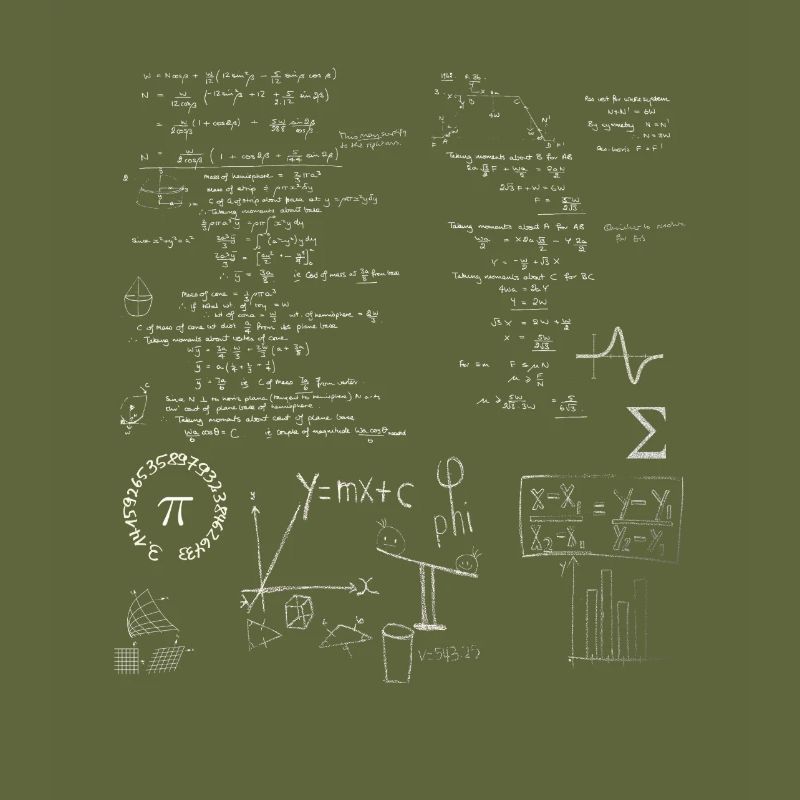 W = N cos β + W/12 (12 sin²β − 5/12 sin β cos β)
N = W/12cosβ (−12 sin²β + 12 + 5/2.12 sin 2β)
= W/2cosβ (1 + cos 2β) + 5W/288 sin 2β/cos β
N = W/2cosβ (1 + cos 2β + 5/144 sin 2β)
This may simplify
to the right ans.
2.
Mass of hemisphere = 2/3 πρa³
Mass of strip = ρπx²δy
C of G of strip about base at y = ρπx²yδy
∴ Taking moments about base
2/3 ρπa³ ȳ = ρπ∫x²y dy
Since x²+y²=a²
2a³ȳ/3 = ∫(a²−y²)y dy
∴ ȳ = 3a/8 ie C of mass at 3a/8 from base
Mass of cone = 1/3 ρπa³
∴ if total wt. of toy = W
∴ wt of cone = W/3 wt. of hemisphere = 2W/3
C of mass of cone wt dist a/4 from its plane base
∴ Taking moments about vertex of cone
Wȳ = 3a/4 W/3 + 2W/3 (a + 3a/8)
ȳ = 7a/6 ie C of mass 7a/6 from vertex
Since N ⊥ to horiz plane (tangent to hemisphere) N acts
thro' cent of plane base of hemisphere
∴ Taking moments about cent of plane base
Wa/6 cos θ = C ie couple of magnitude Wa cos θ/6 needed
1968
3.
X
B
C
4W
N
N'
F
A
F'
Res vert for whole system
N+N' = 6W
By symmetry N = N'
∴ N = 3W
Res. horiz F = F'
Taking moments about B for AB
2a √3/2 F + Wa/2 = 2a N/2
2√3 F + W = 6W
F = 5W/2√3
Taking moments about A for AB
Wa/2 = X 2a √3/2 − Y 2a/2
Quicker to resolve
for B's
Y = −W/2 + √3 X
Taking moments about C for BC
4Wa = 2aY
Y = 2W
√3 X = 2W + W/2
X = 5W/2√3
For F ≤ μN
μ ≥ F/N
μ ≥ 5W/2√3 3W = 5/6√3
Σ
3.141592653589793238462643 3
π
z
y=mx+c
x
φ
phi
X−X₁/X₂−X₁ = Y−Y₁/Y₂−Y₁
Y
V=543.25